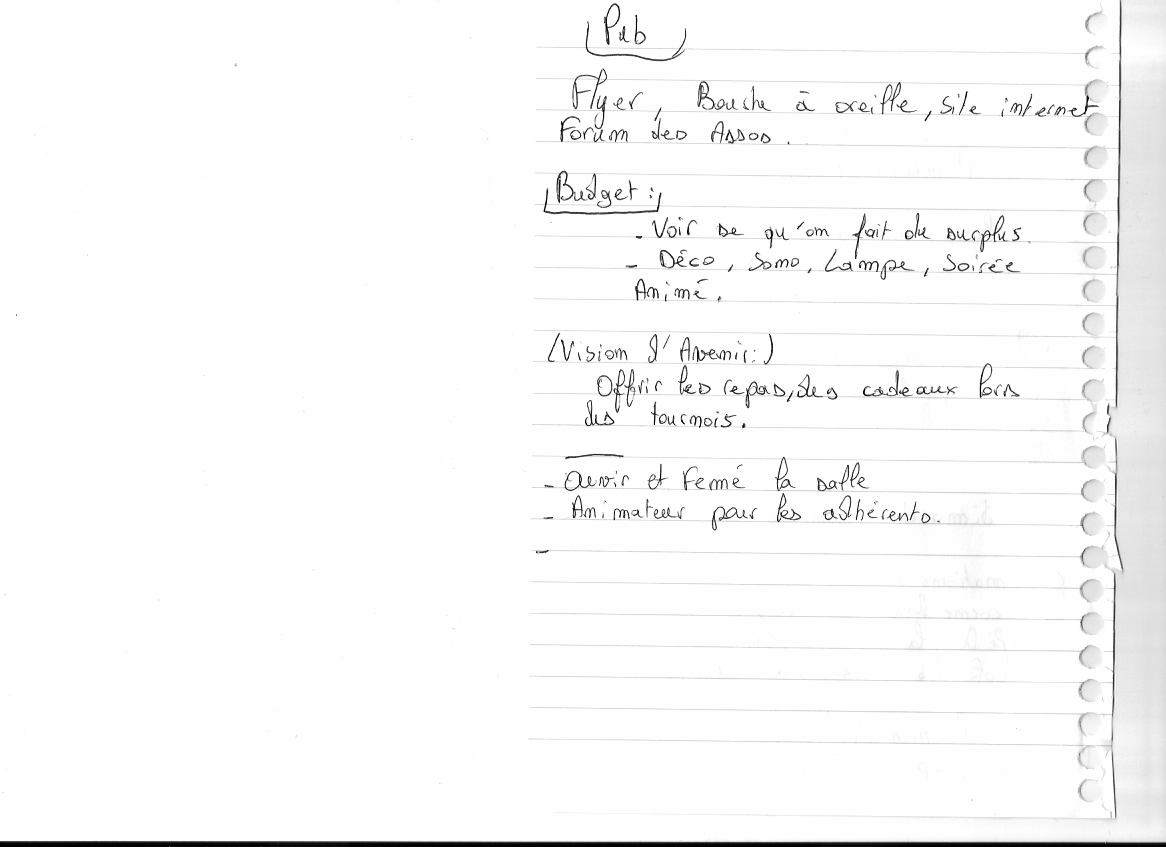 Pub
Flyer, Bouche à oreille, site internet
Forum des Assos.
Budget :
- Voir se qu'on fait du surplus.
- Déco, Sono, Lampe, Soirée
Animé.
(Vision d'Avenir:)
Offrir les repas, des cadeaux lors
des tournois.
- Ouvir et Fermé la salle
- Animateur pour les adhérents.
-